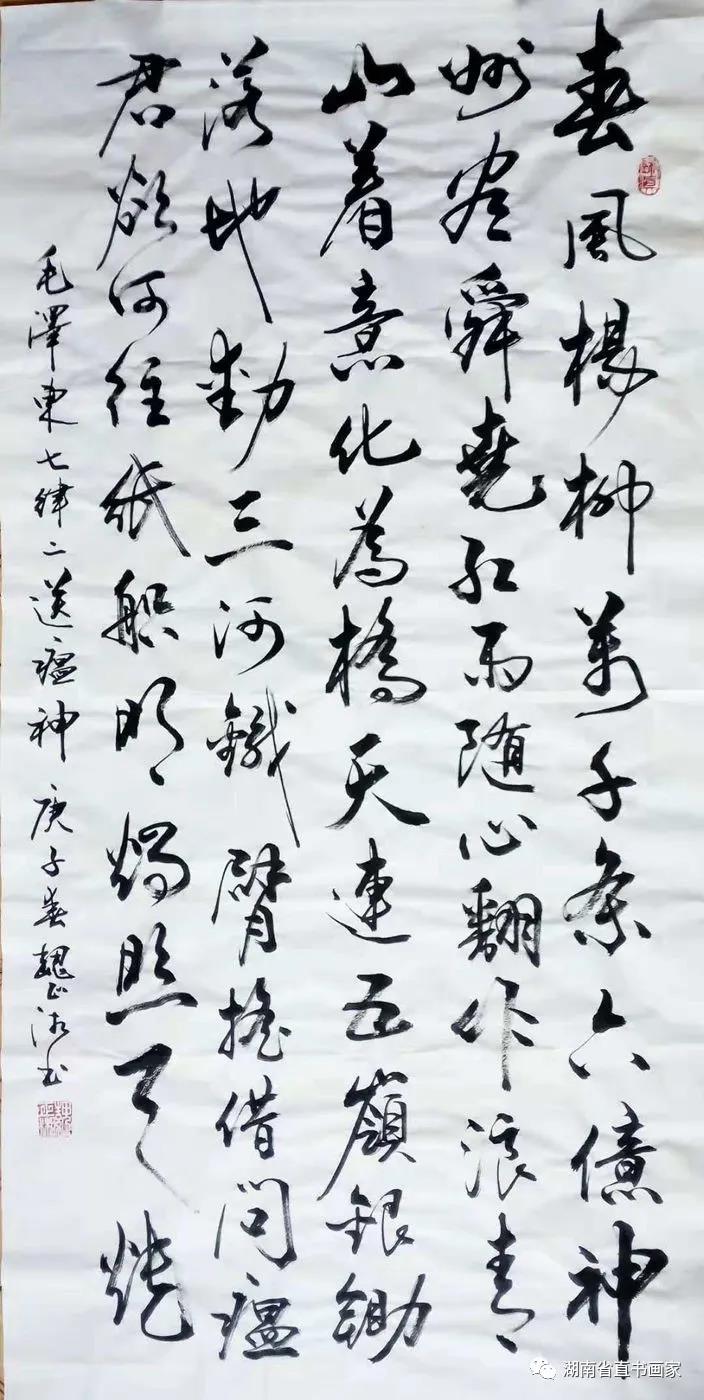 春風楊柳萬千条六億神
州尽舜堯红雨随心翻作浪青
山着意化為橋天連五嶺銀鋤
落地動三河鐵臂搖借問瘟
君欲何往紙船明燭照天燒
毛澤東七律二送瘟神 庚子春魏书
湖南省直书画家